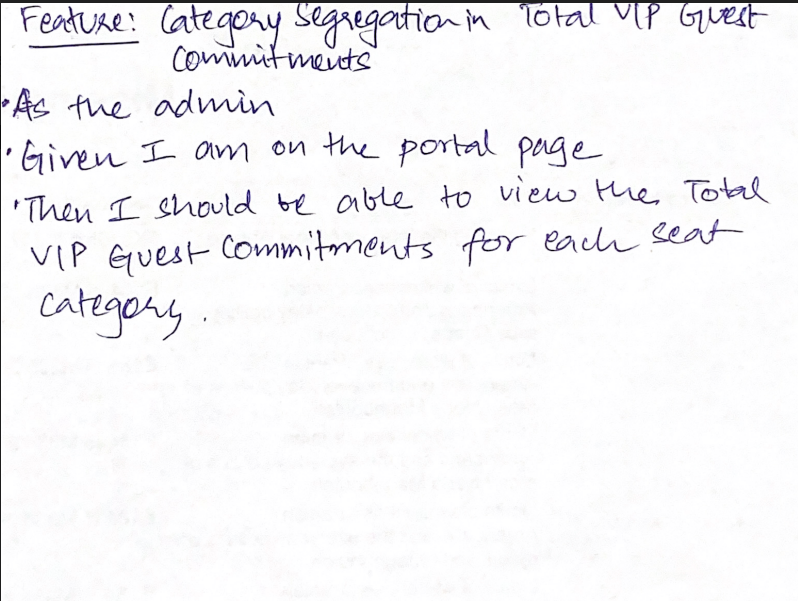 Feature: Category Segregation in Total VIP Guest
Commitments
•As the admin
•Given I am on the portal page
•Then I should be able to view the Total
VIP Guest Commitments for each seat
category.